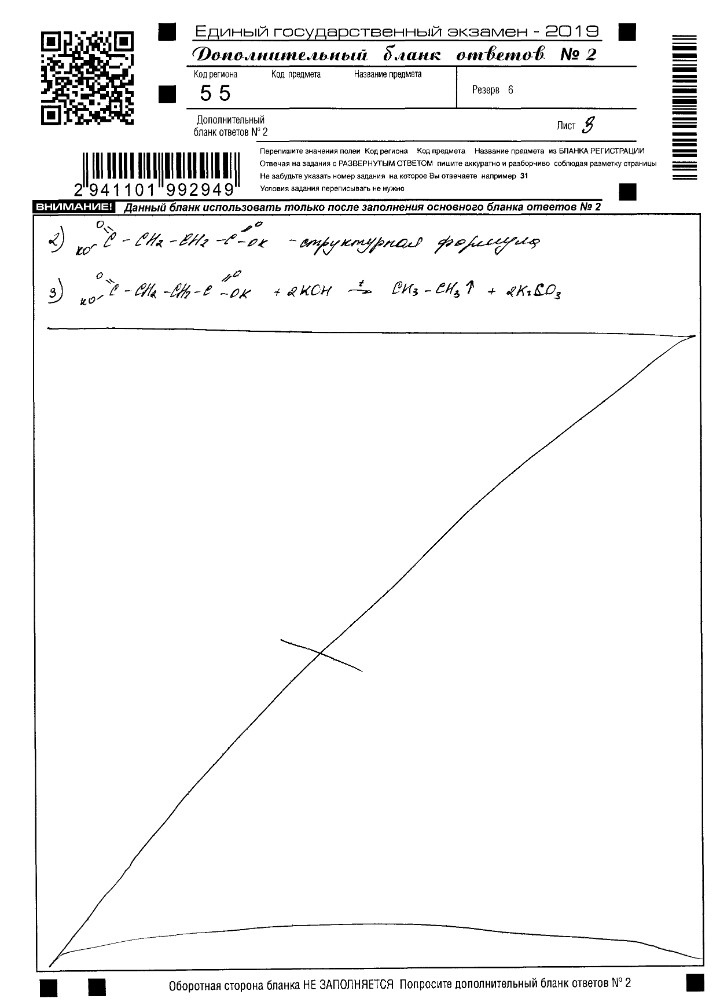 Единый государственный экзамен - 2019
Дополнительный бланк ответов № 2
Код региона Код предмета Название предмета
55
Резерв 6
Дополнительный
бланк ответов № 2
Лист 3
Перепишите значения полей Код региона Код предмета Название предмета из БЛАНКА РЕГИСТРАЦИИ
Отвечая на задания с РАЗВЕРНУТЫМ ОТВЕТОМ пишите аккуратно и разборчиво соблюдая разметку страницы
Не забудьте указать номер задания на которое Вы отвечаете например 31
Условия задания переписывать не нужно
2 941101 992949
ВНИМАНИЕ! Данный бланк использовать только после заполнения основного бланка ответов № 2
2) KO-C(=O) - CH2 - CH2 - C(=O) - OK - структурная формула
3) KO-C(=O) - CH2 - CH2 - C(=O) - OK + 2KOH t→ CH3 - CH3↑ + 2K2CO3
Оборотная сторона бланка НЕ ЗАПОЛНЯЕТСЯ Попросите дополнительный бланк ответов № 2